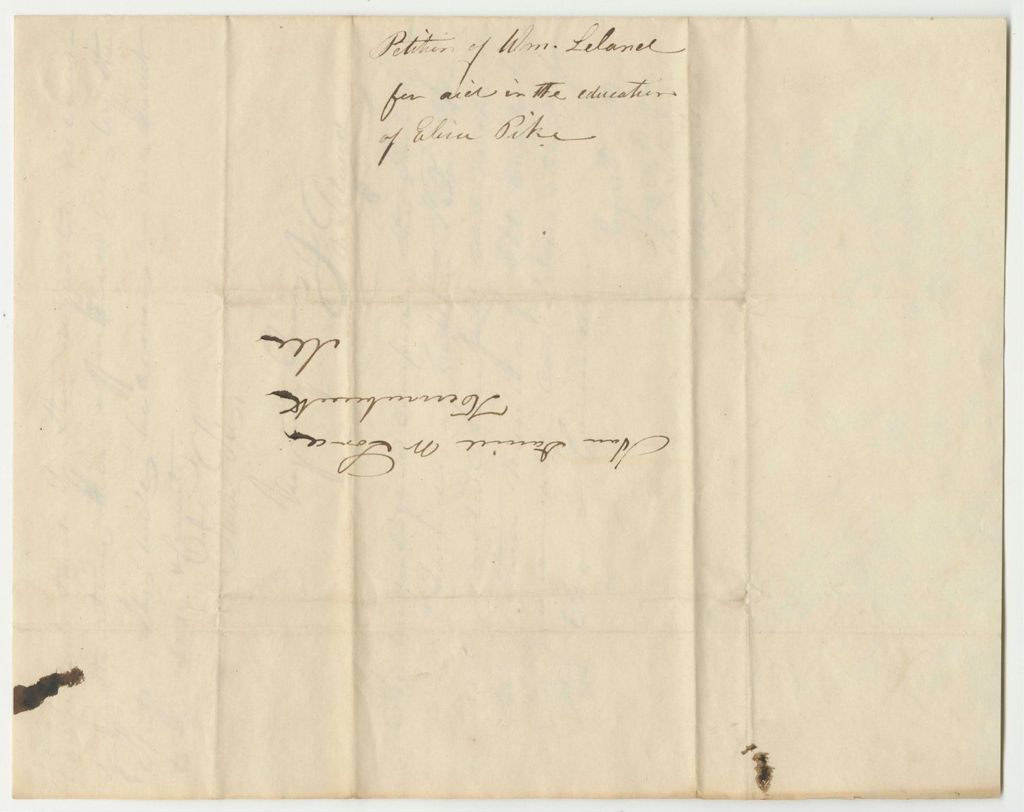 Petition of Wm. Leland
for aid in the education
of Eliza Pike
Hon Daniel W Lord
Kennebunk
Me